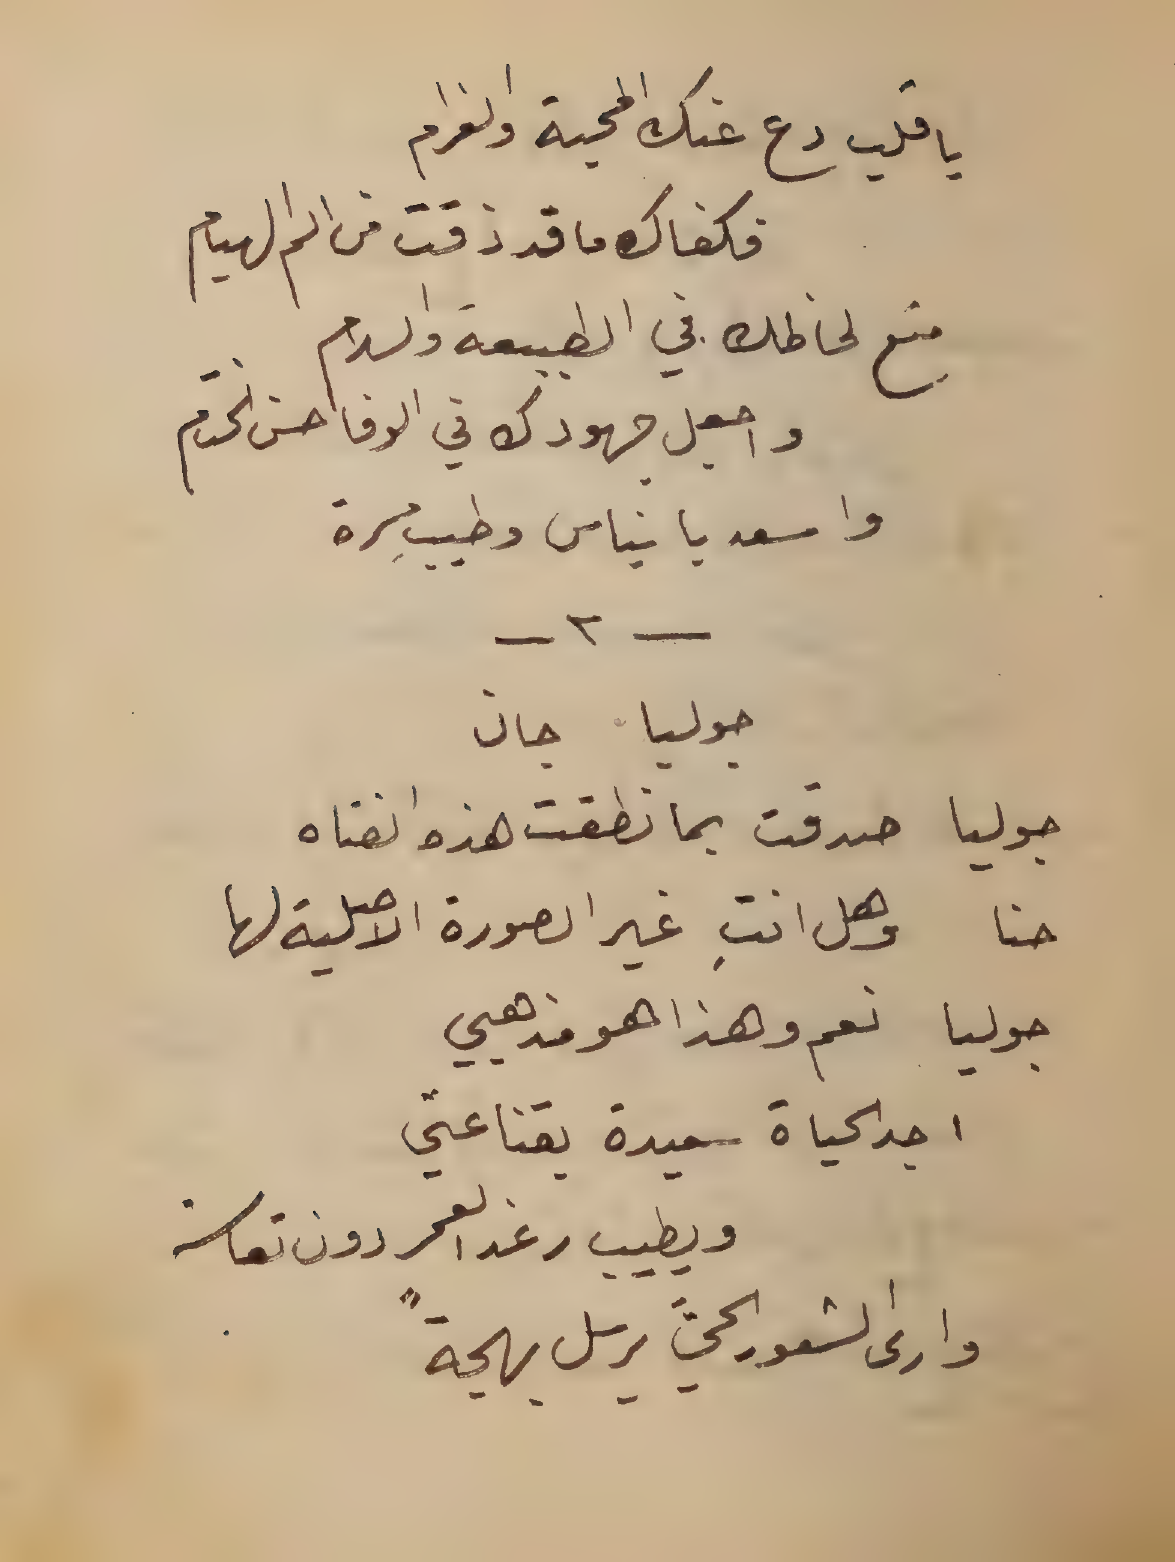 يا قلب دع عنك المحبة والغرام
فكفاك ما قد ذقت من الم الهيام
متع لحاظك في الطبيعة والسلام
واجعل جهودك في الوفا حسن الختام
واسعد بايناس وطيب مسرة
— ٢ —
جوليا جان
جوليا صدقت بما نطقت هذه الفتاه
حنا وهل انتِ غير الصورة الاصلية لها
جوليا نعم وهذا هو مذهبي
اجد الحياة سعيدة بقناعتي
ويطيب رغد العمر دون تعاسة
وارى الشعور الحيَّ يرسل بهجةً